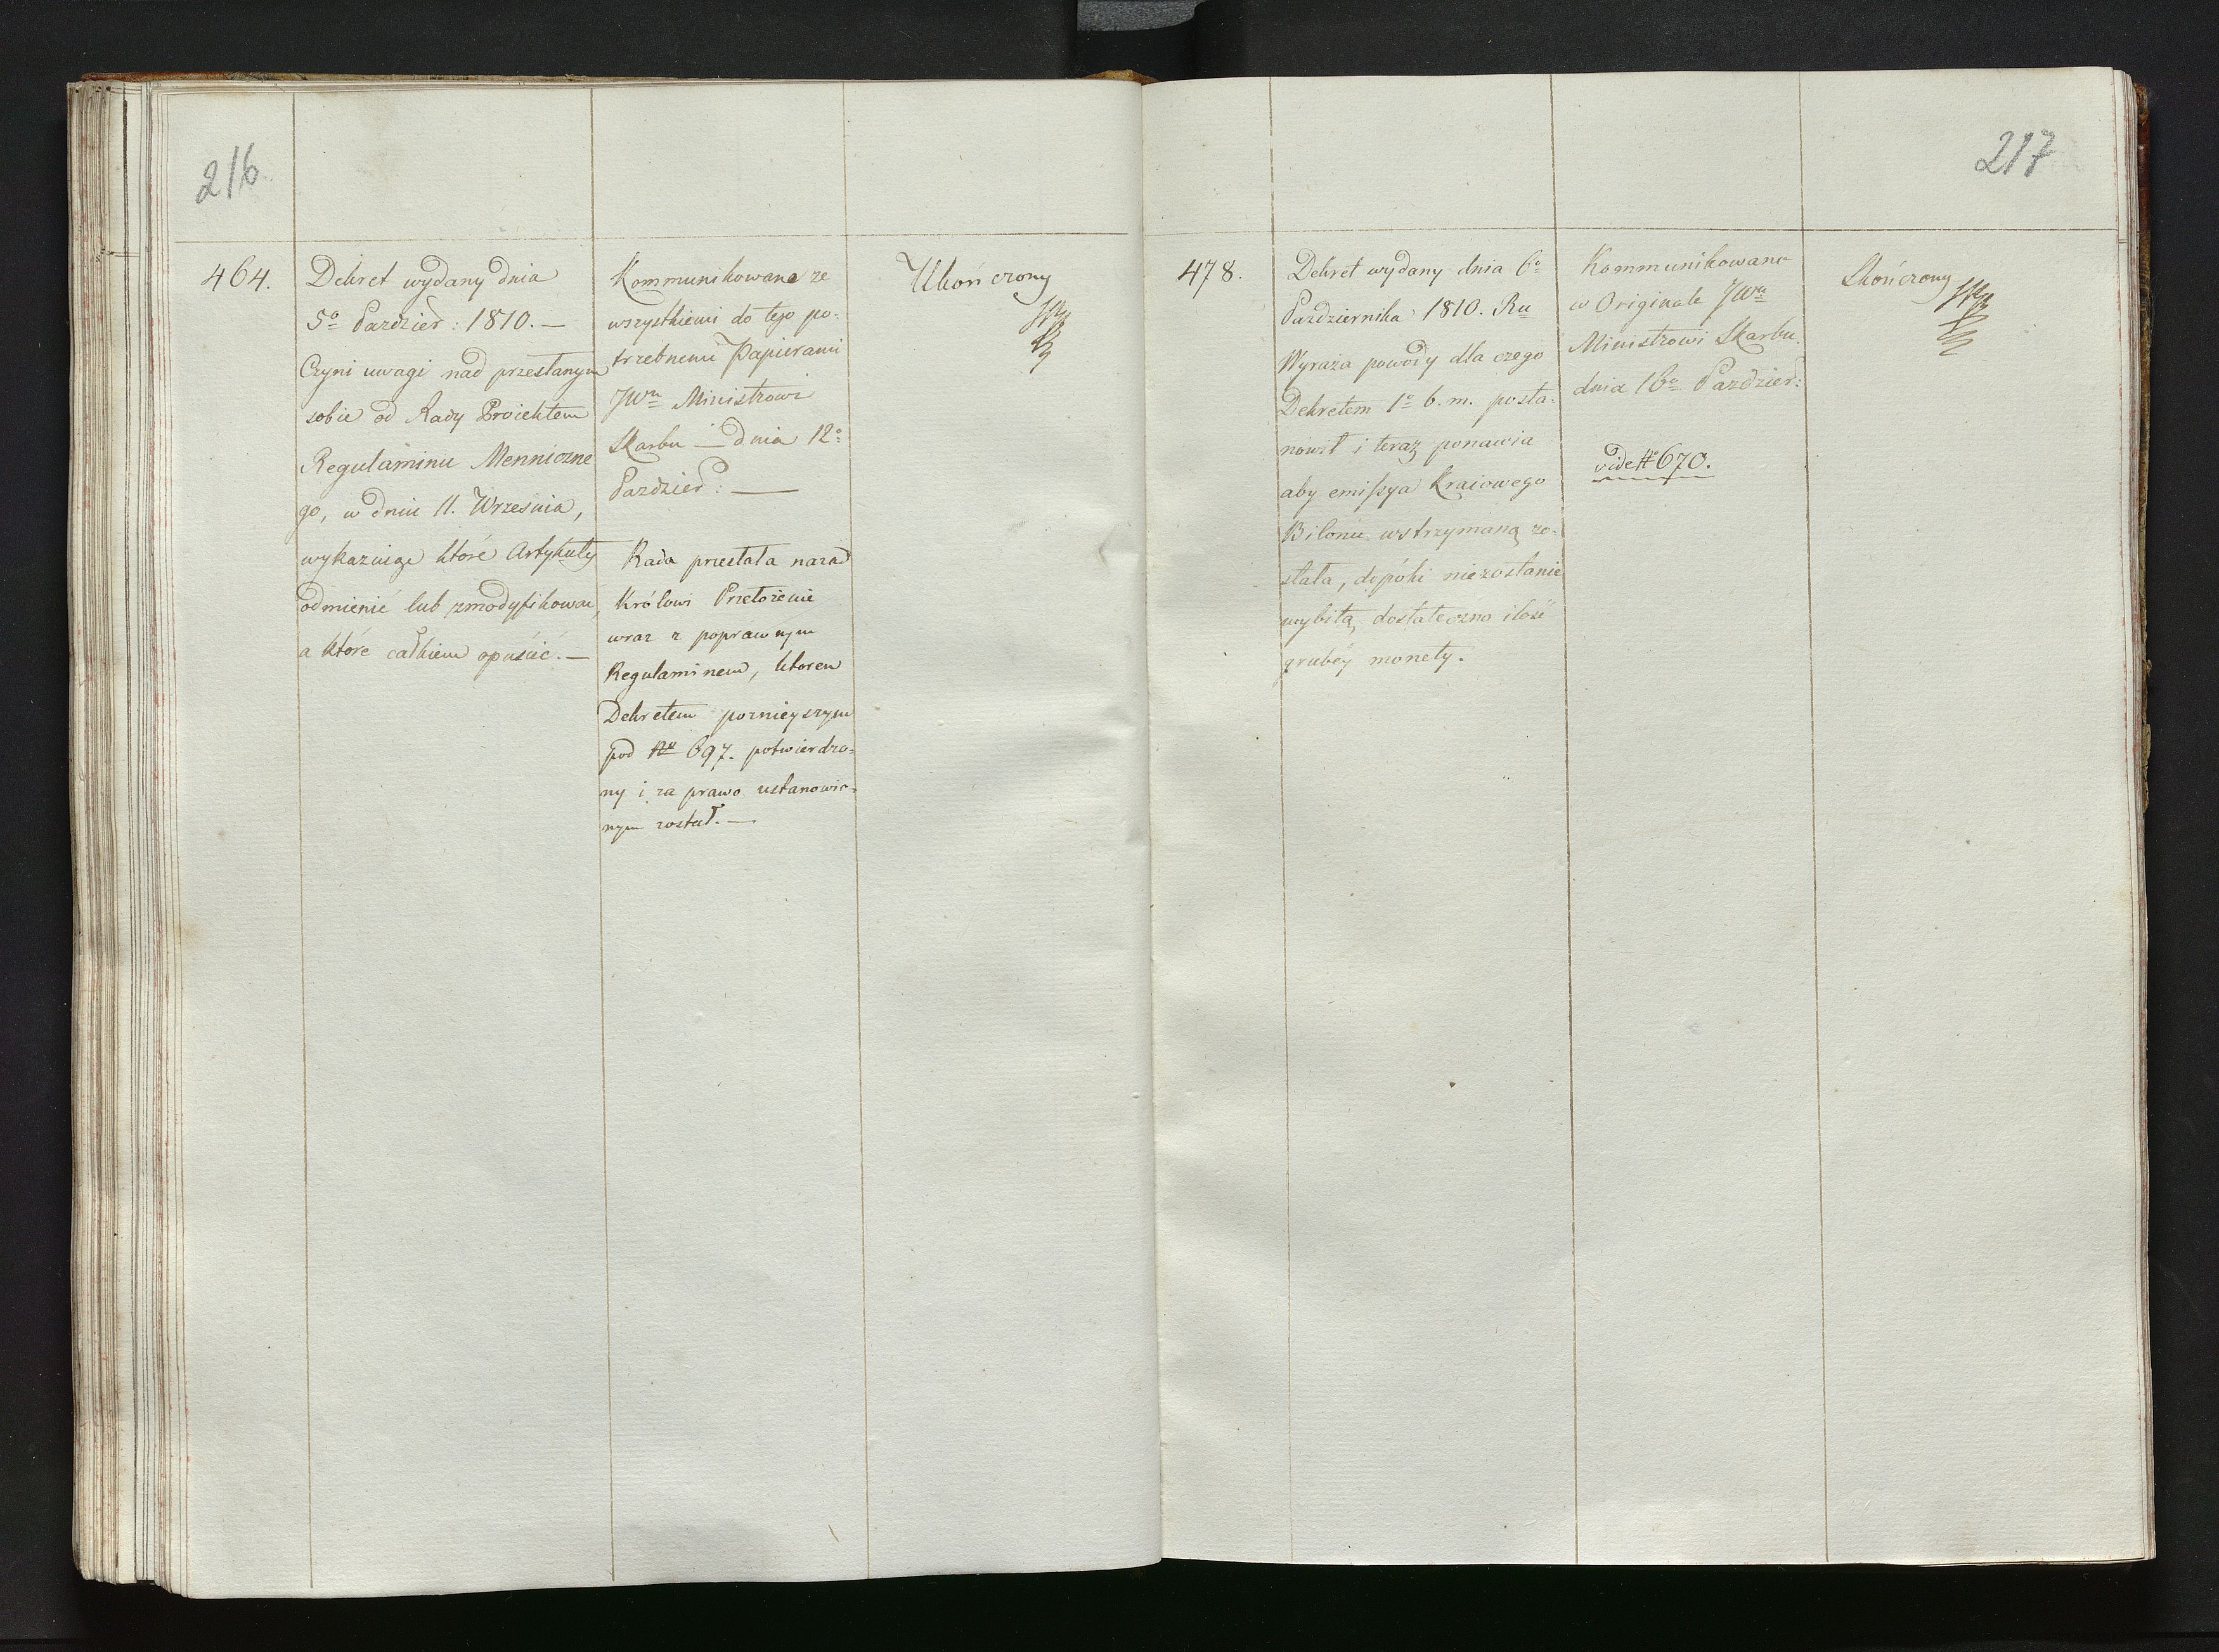 216
464.
Dekret wydany dnia
5o Pazdzier: 1810. —
Czyni uwagi nad przesłanym
sobie od Rady Proiektem
Regulaminu Menniczne
go, w dniu 11. Wrzesnia,
wykazuiąc ktore Artykuły
odmienić lub zmodyfikować,
a które całkiem opuścić. —
Kommunikowane ze
wszystkiemi do tego po-
trzebnemi Papierami
JWu Ministrowi
Skarbu — dnia 12o
Pazdzier: —
Rada przesłała nazad
Królowi Przełożenie
wraz z poprawnym
Regulaminem, ktoren
Dekretem poznieyszym
pod No 697. potwierdzo-
ny i za prawo ustanowio-
nym został. —
Ukończony
217
478.
Dekret wydany dnia 6o
Pazdziernika 1810. Ru
Wyraża powody dla czego
Dekretem 1o b. m. posta-
nowił i teraz ponawia
aby emissya Kraiowego
Bilonu wstrzymaną zo-
stała, dopóki niezostanie
wybitą dostateczna ilość
grubéy monety.
Kommunikowano
w Originale JWu
Ministrowi Skarbu.
dnia 16o Pazdzier:
vide No 670.
Skończony